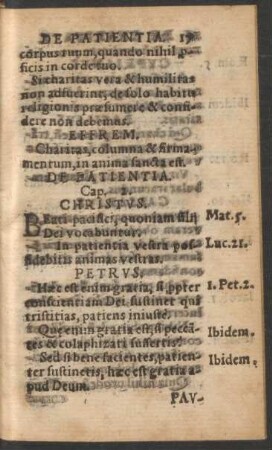 DE PATIENTIA. 19
corpus tuum, quando nihil p-
ficis in corde tuo.
Si charitas vera & humilitas
non adfuerint, de solo habitu
religionis præsumere & confi
dere non debemus.
EFFREM.
Charitas, columna & firma-
mentum, in anima sancta est.
DE PATIENTIA.
Cap. 2.
CHRISTVS.
BEati pacifici, quoniam filij Mat. 5.
Dei vocabuntur.
In patientia vestra pos Luc. 21.
sidebitis animas vestras.
PETRVS.
Hæc est enim gratia, si ppter 1. Pet. 2.
conscientiam Dei sustinet quis
tristitias, patiens iniustè.
Que enim gratia est, si peccã- Ibidem.
tes & colaphizati suffertis?
Sed si bene facientes, patien- Ibidem.
ter sustinetis, hæc est gratia a-
pud Deum.
PAV-